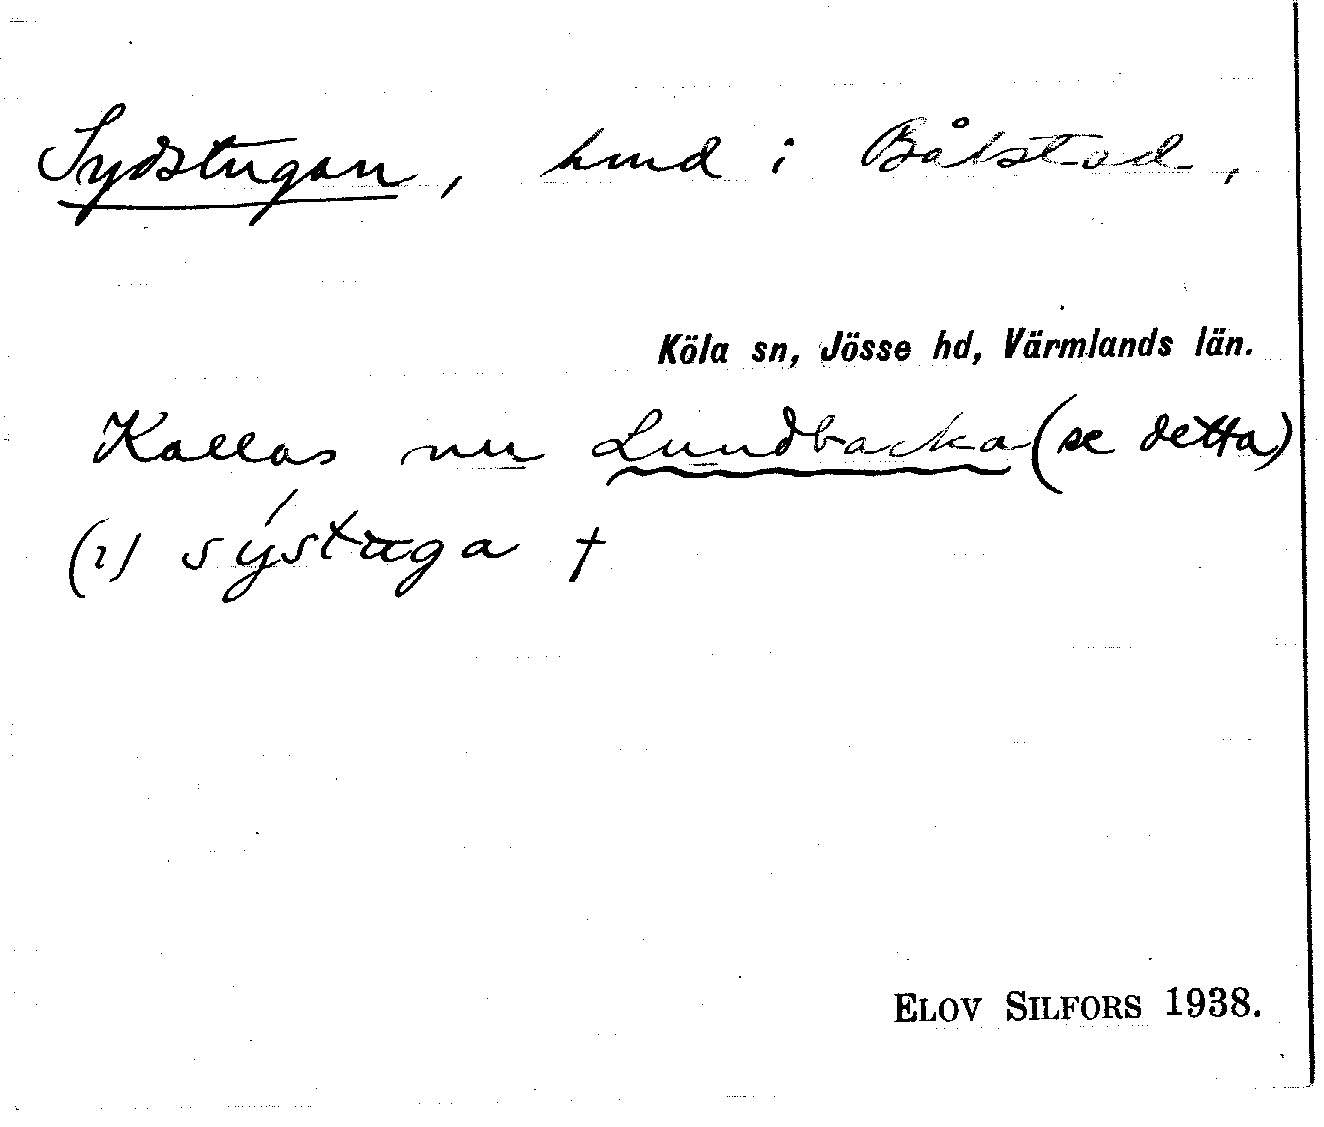 Sydstugan, hmd i Bålstad,
Köla sn, Jösse hd, Värmlands län.
Kallas nu Lundbacka (se detta)
(1) sýstuga †
ELOV SILFORS 1938.